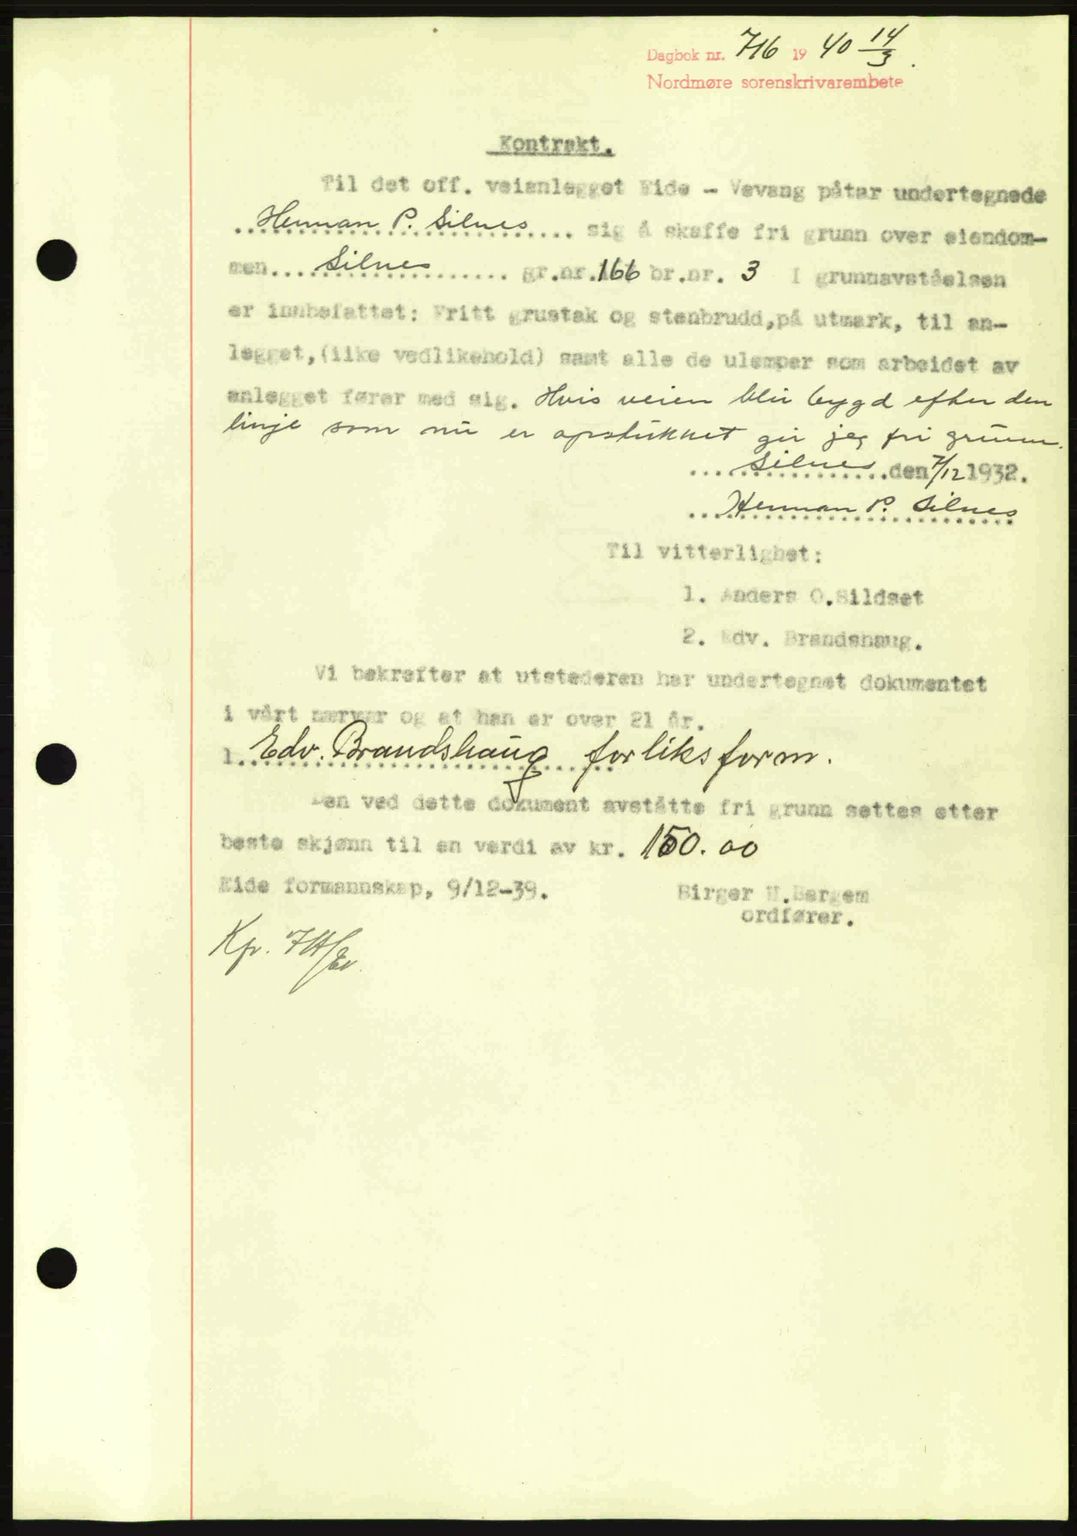 Dagbok nr. 716 1940 14/3.
Nordmøre sorenskrivarembete
Kontrakt.
Til det off. veianlegget Eide - Vevang påtar undertegnede
..Herman P. Silnes.... sig å skaffe fri grunn over eiendom-
men....Silnes....... gr.nr.166 br.nr. 3 I grunnavståelsen
er innbefattet: Fritt grustak og stenbrudd,på utmark, til an-
legget,(iike vedlikehold) samt alle de ulemper som arbeidet av
anlegget fører med sig. Hvis veien blir bygd efter den
linje som nu er opstukket gir jeg fri grunn.
....Silnes....den 7/12 1932.
...Herman P. Silnes
Til vitterlighet:
1. Anders O.Sildset
2. Edv. Brandshaug.
Vi bekrefter at utstederen har undertegnet dokumentet
i vårt nærvær og at han er over 21 år.
1..Edv. Brandshaug forliksform.
Den ved dette dokument avståtte fri grunn settes etter
beste skjønn til en verdi av kr. 150.00
Eide formannskap, 9/12-39. Birger H.Bergem
ordfører.
Kp.